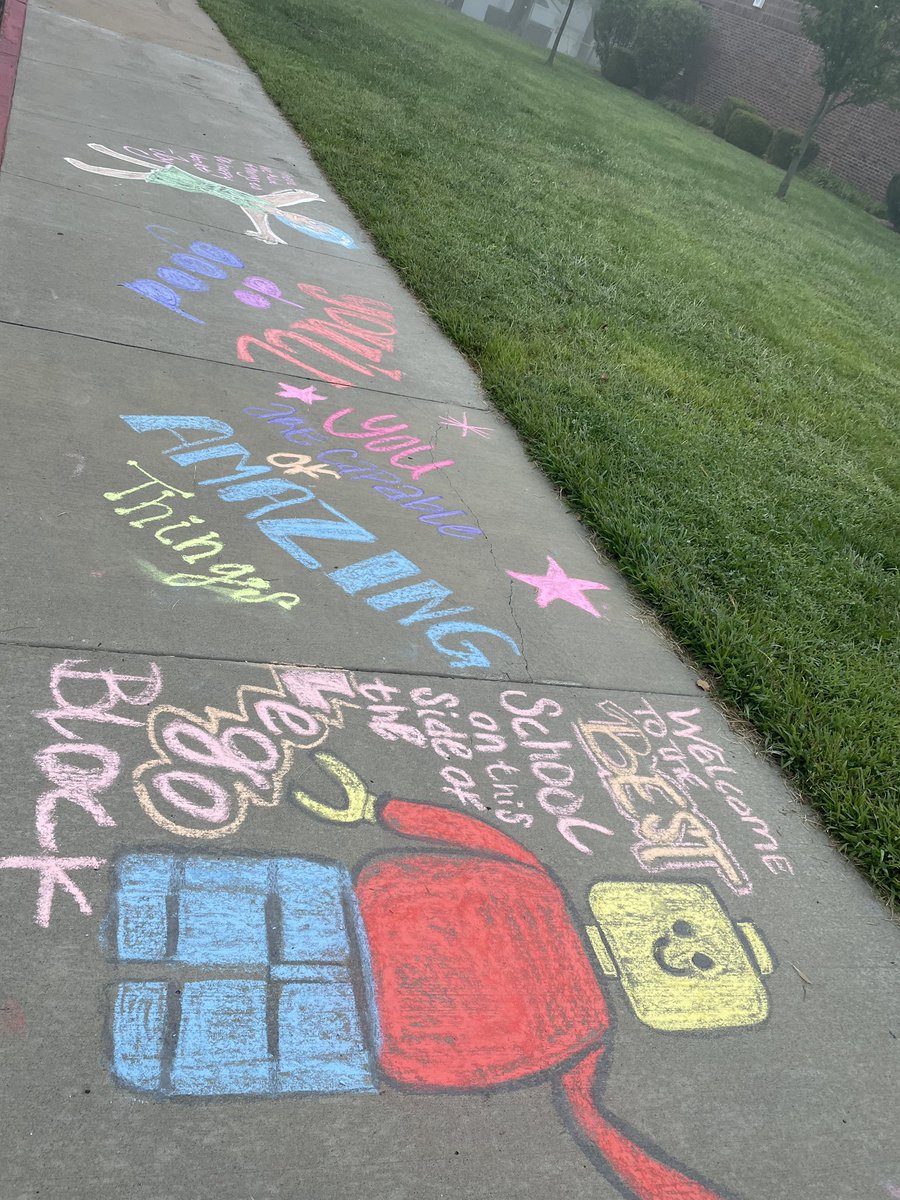 Welcome
TO THE
BEST
School
on this
Side of
the
Lego
BLOCK
YOU
are capable
OF
AMAZING
Things